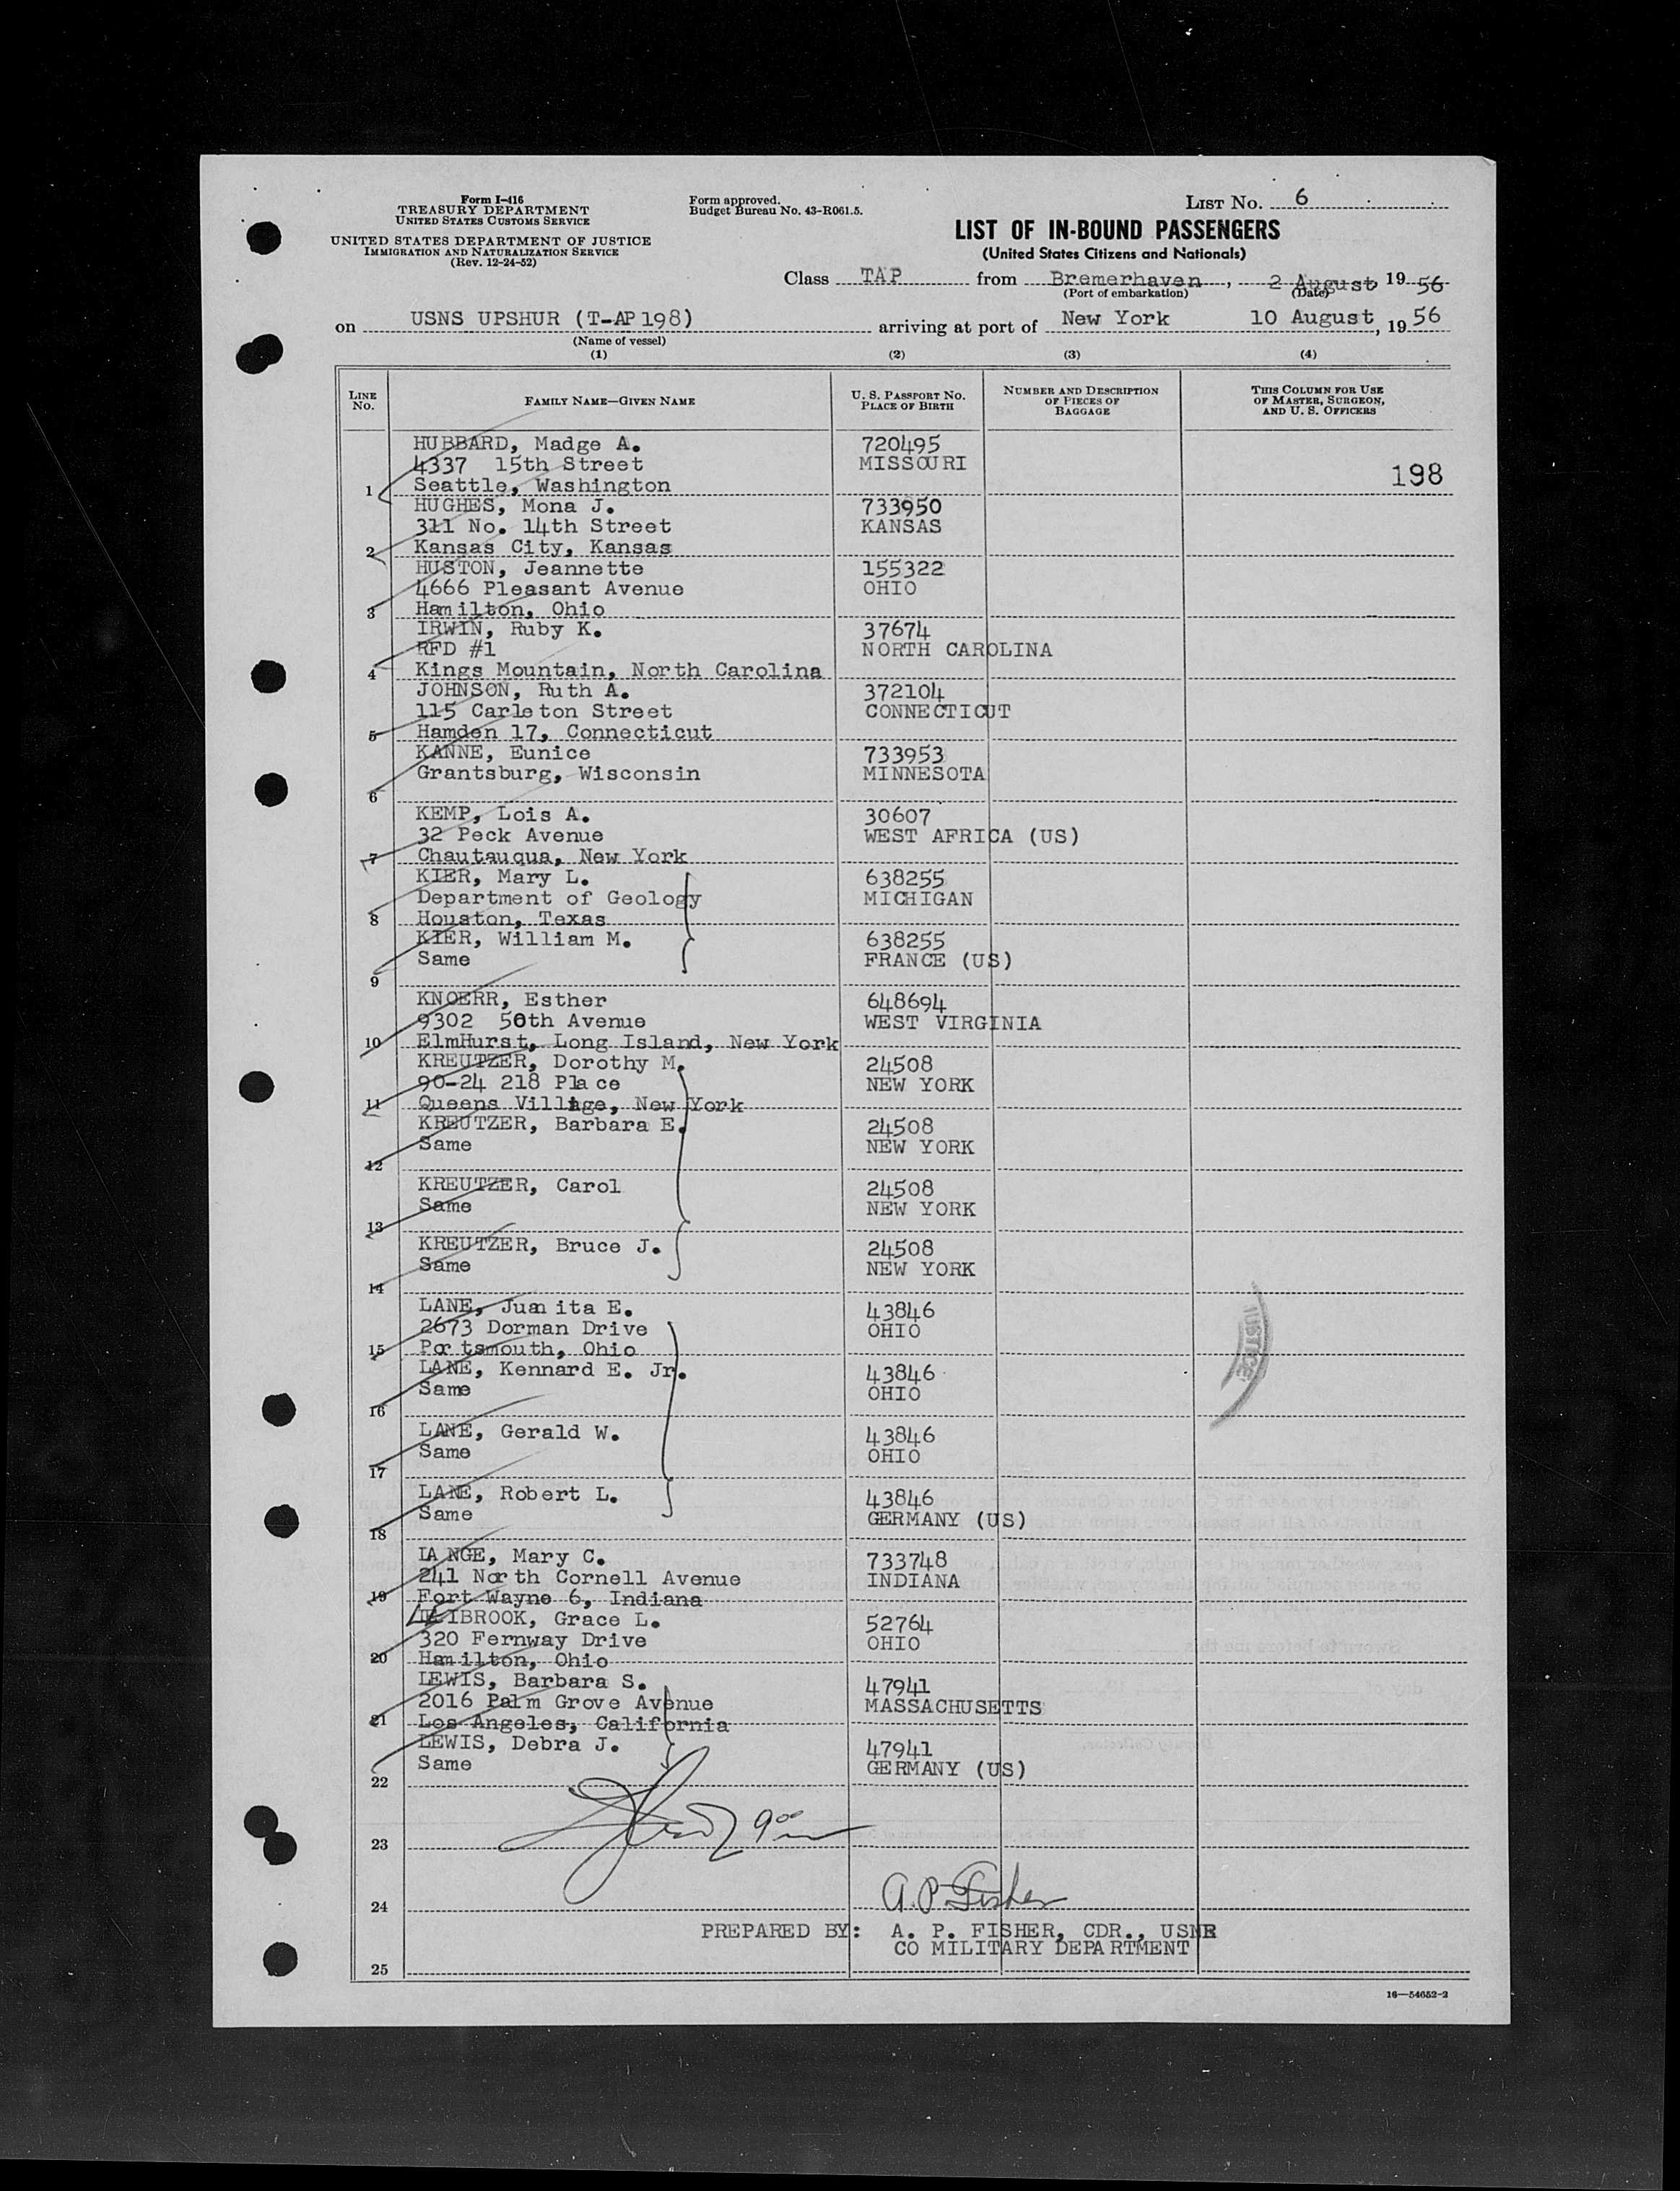 Form I-416
TREASURY DEPARTMENT
UNITED STATES CUSTOMS SERVICE
UNITED STATES DEPARTMENT OF JUSTICE
IMMIGRATION AND NATURALIZATION SERVICE
(Rev. 12-24-52)
Form approved.
Budget Bureau No. 43-R061.5.
LIST NO. 6
LIST OF IN-BOUND PASSENGERS
(United States Citizens and Nationals)
Class TAP from Bremerhaven, 2 August, 1956
(Port of embarkation) (Date)
on USNS UPSHUR (T-AP 198) arriving at port of New York 10 August, 1956
(Name of vessel)
(1) (2) (3) (4)
LINE NO. FAMILY NAME—GIVEN NAME U. S. PASSPORT NO. PLACE OF BIRTH NUMBER AND DESCRIPTION OF PIECES OF BAGGAGE THIS COLUMN FOR USE OF MASTER, SURGEON, AND U. S. OFFICERS
HUBBARD, Madge A. 720495
4337 15th Street MISSOURI 198
1 Seattle, Washington
HUGHES, Mona J. 733950
311 No. 14th Street KANSAS
2 Kansas City, Kansas
HUSTON, Jeannette 155322
4666 Pleasant Avenue OHIO
3 Hamilton, Ohio
IRWIN, Ruby K. 37674
RFD #1 NORTH CAROLINA
4 Kings Mountain, North Carolina
JOHNSON, Ruth A. 372104
115 Carleton Street CONNECTICUT
5 Hamden 17, Connecticut
KANNE, Eunice 733953
Grantsburg, Wisconsin MINNESOTA
6
KEMP, Lois A. 30607
32 Peck Avenue WEST AFRICA (US)
7 Chautauqua, New York
KIER, Mary L. 638255
Department of Geology MICHIGAN
8 Houston, Texas
KIER, William M. 638255
Same FRANCE (US)
9
KNOERR, Esther 648694
9302 50th Avenue WEST VIRGINIA
10 ElmHurst, Long Island, New York
KREUTZER, Dorothy M. 24508
90-24 218 Place NEW YORK
11 Queens Village, New York
KREUTZER, Barbara E. 24508
Same NEW YORK
12
KREUTZER, Carol 24508
Same NEW YORK
13
KREUTZER, Bruce J. 24508
Same NEW YORK
14
LANE, Juanita E. 43846
2673 Dorman Drive OHIO
15 Portsmouth, Ohio
LANE, Kennard E. Jr. 43846
Same OHIO
16
LANE, Gerald W. 43846
Same OHIO
17
LANE, Robert L. 43846
Same GERMANY (US)
18
LANGE, Mary C. 733748
241 North Cornell Avenue INDIANA
19 Fort Wayne 6, Indiana
LEIBROOK, Grace L. 52764
320 Fernway Drive OHIO
20 Hamilton, Ohio
LEWIS, Barbara S. 47941
2016 Palm Grove Avenue MASSACHUSETTS
21 Los Angeles, California
LEWIS, Debra J. 47941
Same GERMANY (US)
22
23
24 A. P. Fisher
PREPARED BY: A. P. FISHER, CDR., USNR
CO MILITARY DEPARTMENT
25
16—54652-2
JUSTICE